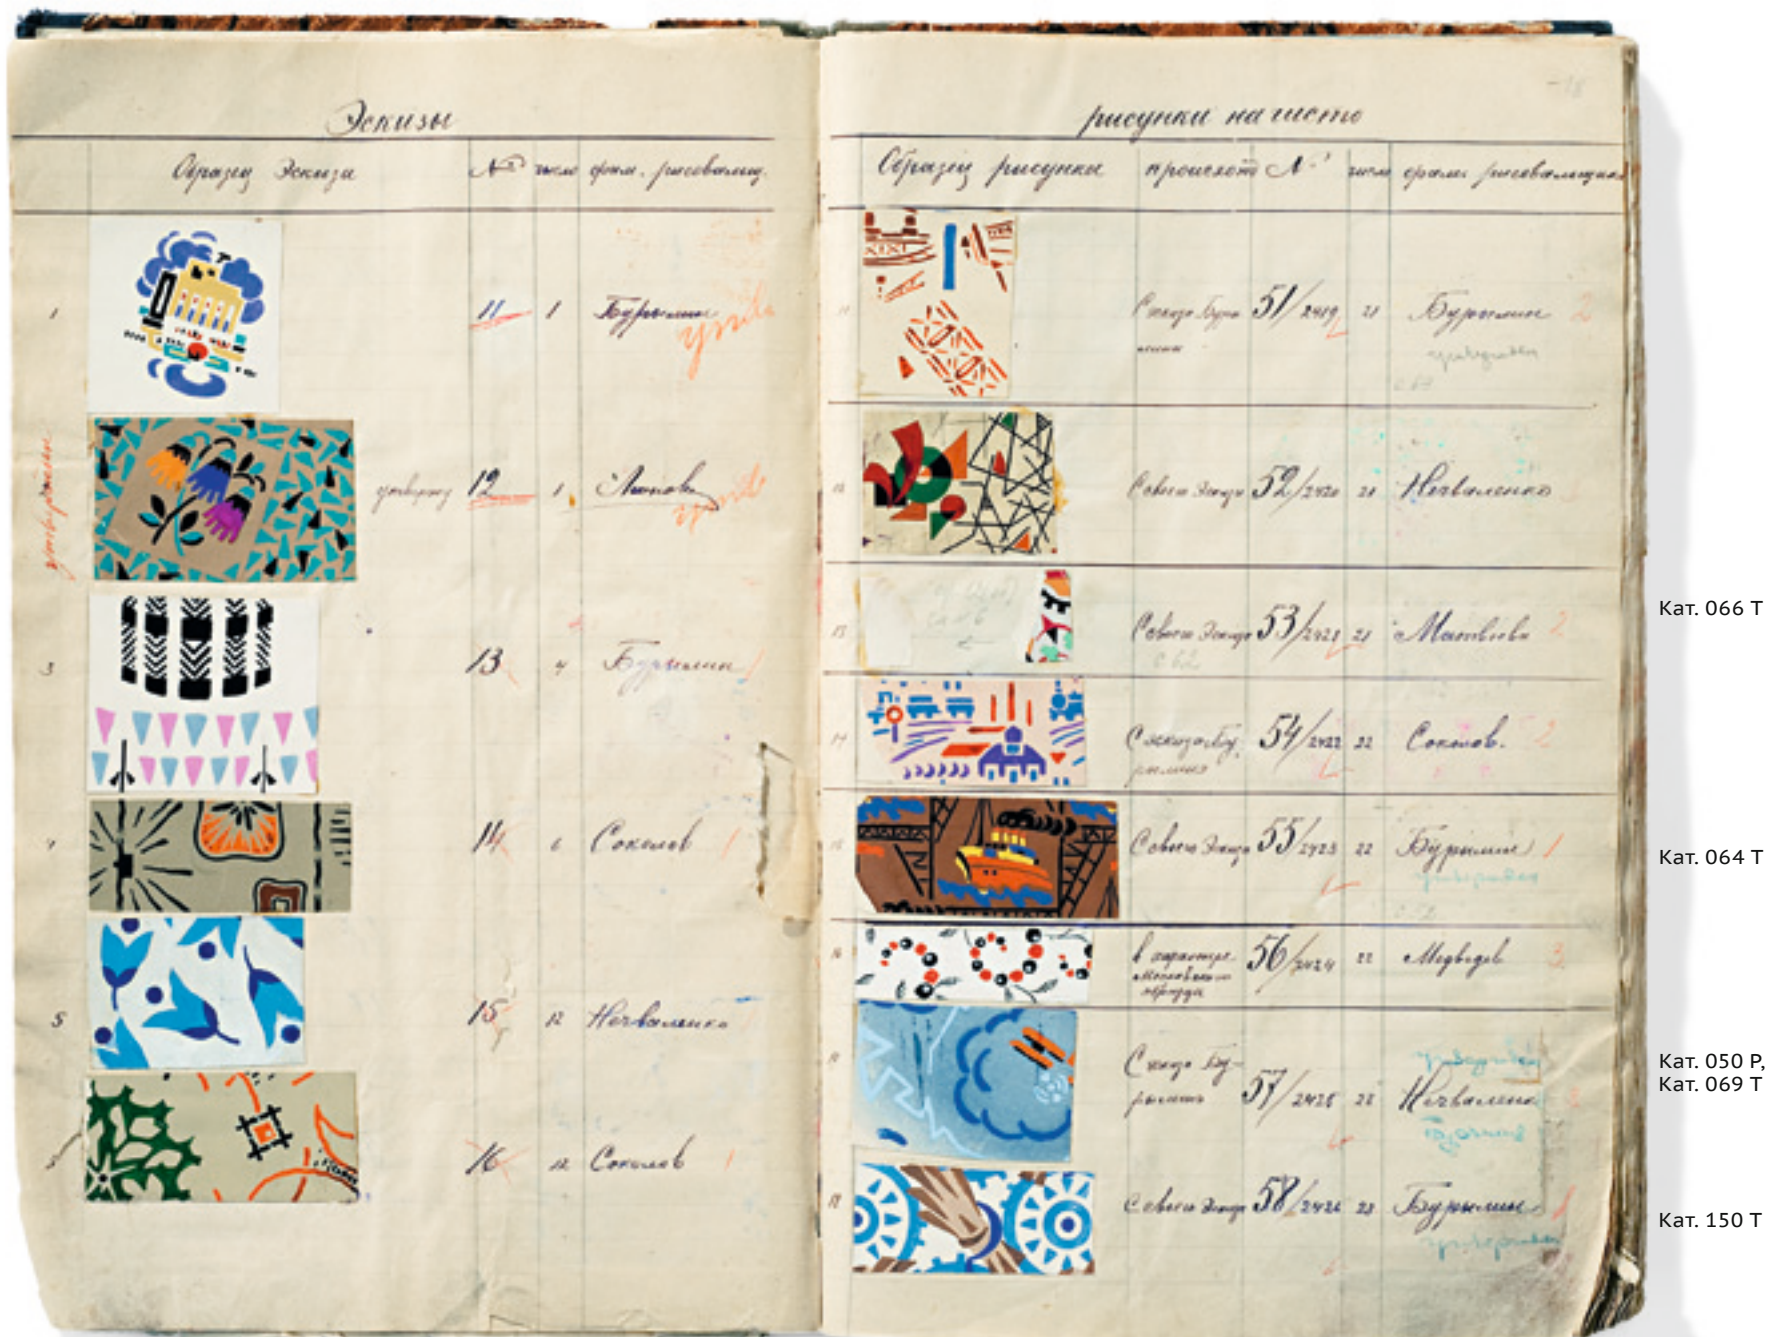 Эскизы
Образец Эскиза № число фам. рисовальщ.
1 11 1 Бурылин утв.
утвержден
12 1 утв.
3 13 4 Бурылин 1
4 14 6 Соколов 1
5 15 12 Нечваленко
16 12 Соколов 1
рисунки на чисто
Образец рисунка происхож № число фам. рисовальщика
11 С эскиза Бурылина 51/2419 21 Бурылин 2
утвержден
12 С своего Эскиза 52/2420 21 Нечваленко
13 С своего Эскиза 53/2421 21 Матвеева 2
14 С эскиза Бурылина 54/2422 22 Соколов. 2
15 С своего Эскиза 55/2423 22 Бурылин 1
утвержден
16 в характере московского образца 56/2424 22 Медведев 3
17 С эскиза Бурылина 57/2425 22 Нечваленко
утвержден
18 С своего Эскиза 58/2426 23 Бурылин 1
утвержден
Кат. 066 Т
Кат. 064 Т
Кат. 050 Р,
Кат. 069 Т
Кат. 150 Т